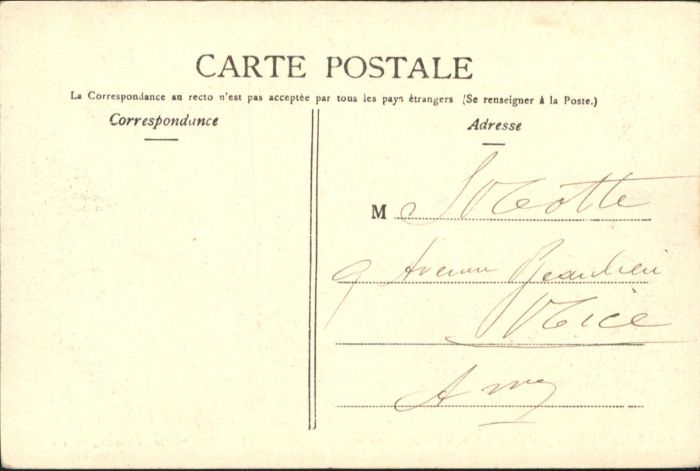 CARTE POSTALE
La Correspondance au recto n'est pas acceptée par tous les pays étrangers (Se renseigner à la Poste.)
Correspondance
Adresse
M
9 Avenue Beaulieu
Nice
A My